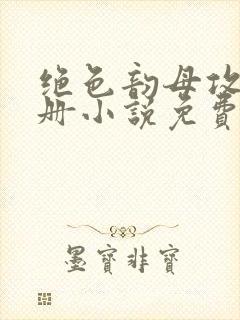 绝色韵母攻
册小说免費
墨寶非寶